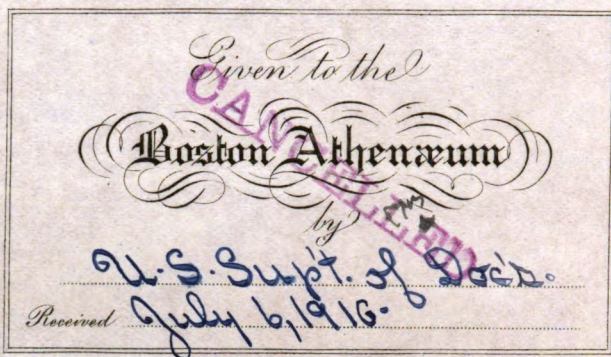 Given to the
CANCELLED
Boston Athenæum
by
U.S. Sup't. of Doc's.
Received July 6, 1916.